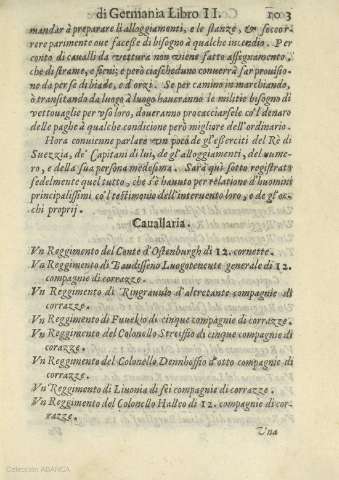 di Germania Libro II. 103
mandar à preparare li alloggiamenti, e le stanze, & soccor-
rere parimente oue facesse di bisogno à qualche incendio. Per
conto di caualli da vettura non viene fatto assegnamento,
che di strame, e fieni; e però ciascheduno conuerrà far prouisio-
ne da per se di biade, e d'orzi. Se per camino in marchiando,
ò transitando da luogo à luogo haueranno le militie bisogno di
vettouaglie per vso loro, doueranno procacciarsele co'l denaro
delle paghe à qualche condicione però migliore dell'ordinario.
Hora conuienne parlare vn poco de gl'esserciti del Rè di
Suezzia, de' Capitani di lui, de gl'alloggiamenti, del nume-
ro, e della sua persona medesima. Sarà quì sotto registrato
fedelmente quel tutto, che s'è hauuto per relatione d'huomini
principalissimi co'l testimonio dell'interuento loro, e de gl'oc-
chi proprij.
Cauallaria.
Vn Reggimento del Conte d'Ostenburgh di 12. cornette.
Vn Reggimento di Baudisseno Luogotenente generale di 12.
compagnie di corrazze.
Vn Reggimento di Ringrauio d'altretante compagnie di
corrazze.
Vn Reggimento di cinque compagnie di corrazze.
Vn Reggimento del Colonello Streissio di cinque compagnie di
corazze.
Vn Reggimento del Colonello Dennhossio d'otto compagnie di
corrazze.
Vn Reggimento di Liuonia di sei compagnie di corrazze.
Vn Reggimento del Colonello Halleo di 12. compagnie di cor-
razze.
Vna
Colección ABANCA